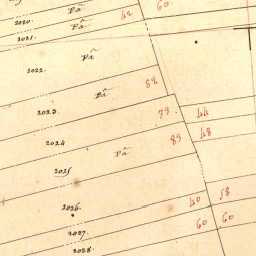 2020. Pâ 42 60
2021. Pâ
2022. Pâ
82
2023. Pâ
79. 44
2024 89 48
Pâ
2025
2026. 40 58
2027. 60 60
2028.